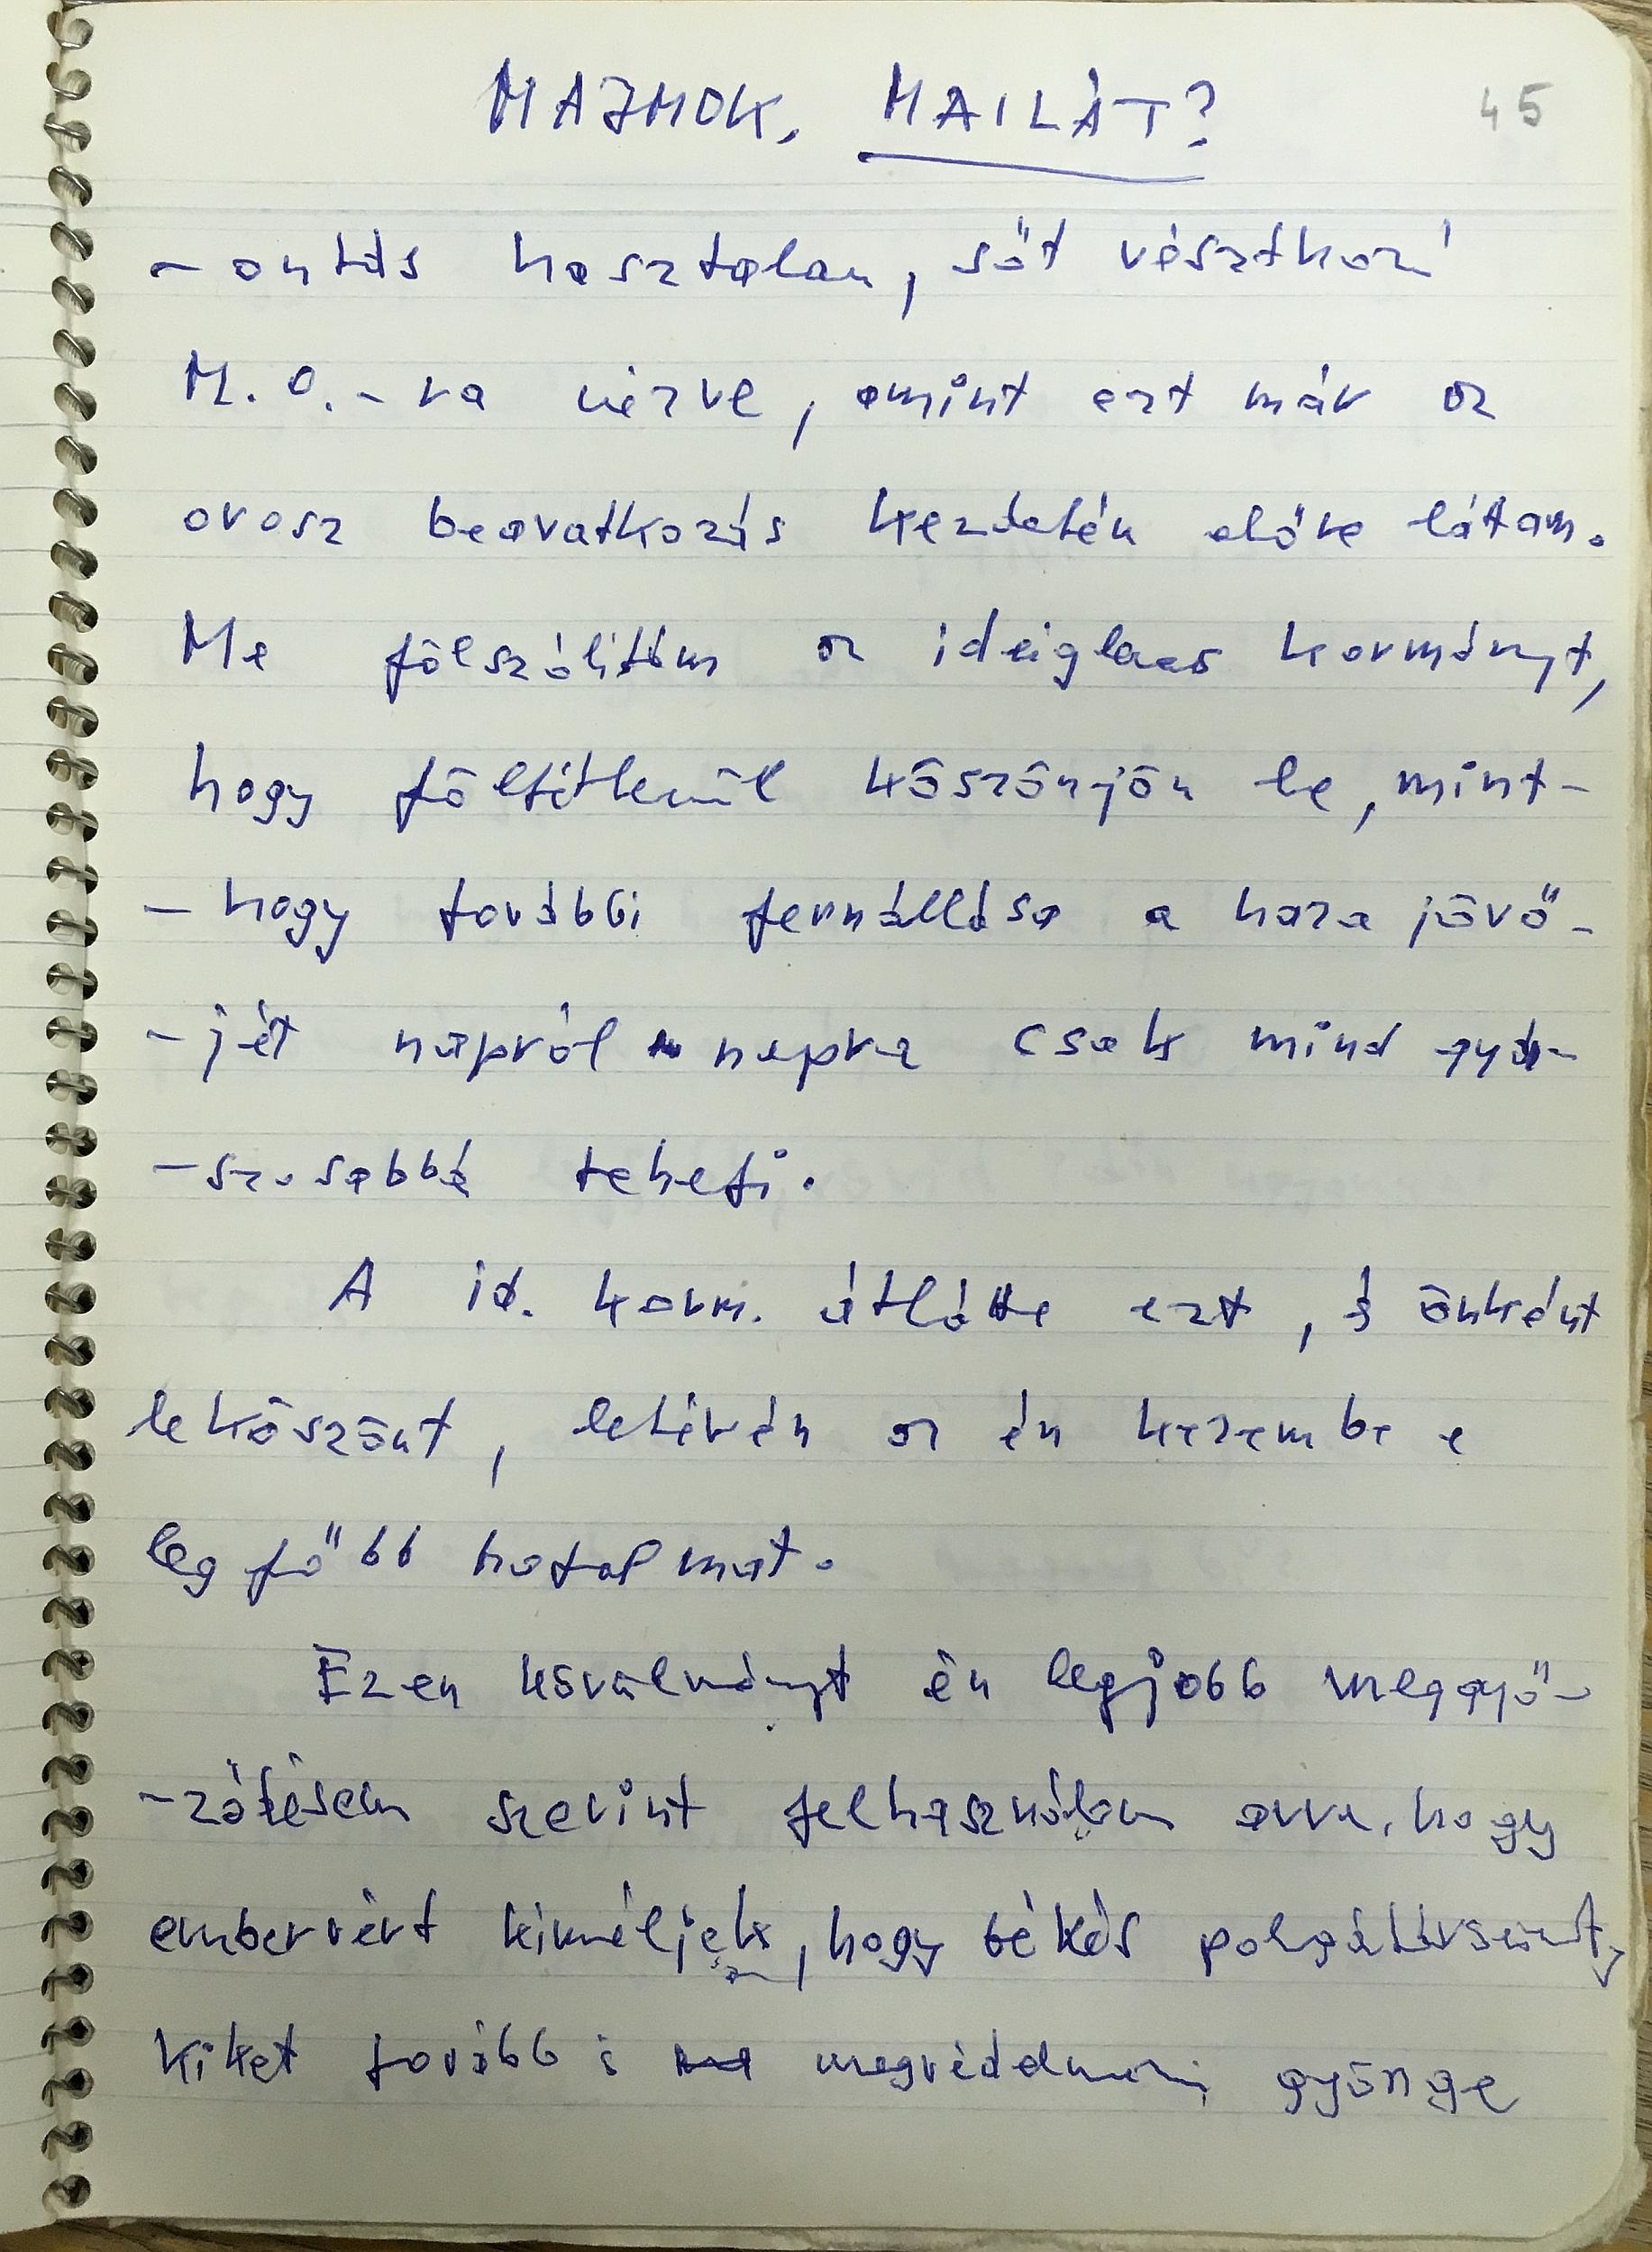 MAJMOK, MAILÁT? 45
- ontás hasztalan, sőt vészthozó
M. O. - ra nézve, amint ezt már az
orosz beavatkozás kezdetén előre látám.
Ma fölszólítám az ideiglenes kormányt,
hogy föltétlenül köszönjön le, mint-
- hogy további fennállása a haza jövő-
- jét napról napra csak mind gyá-
- szosabbá teheti.
A id. korm. átlátta ezt, s önként
leköszönt, letévén az én kezembe a
legfőbb hatalmat.
Ezen körülményt én legjobb meggyő-
- ződésem szerint felhasználom arra, hogy
embervért kíméljek, hogy békés polgártársaimat,
kiket tovább is megvédelmezni gyönge